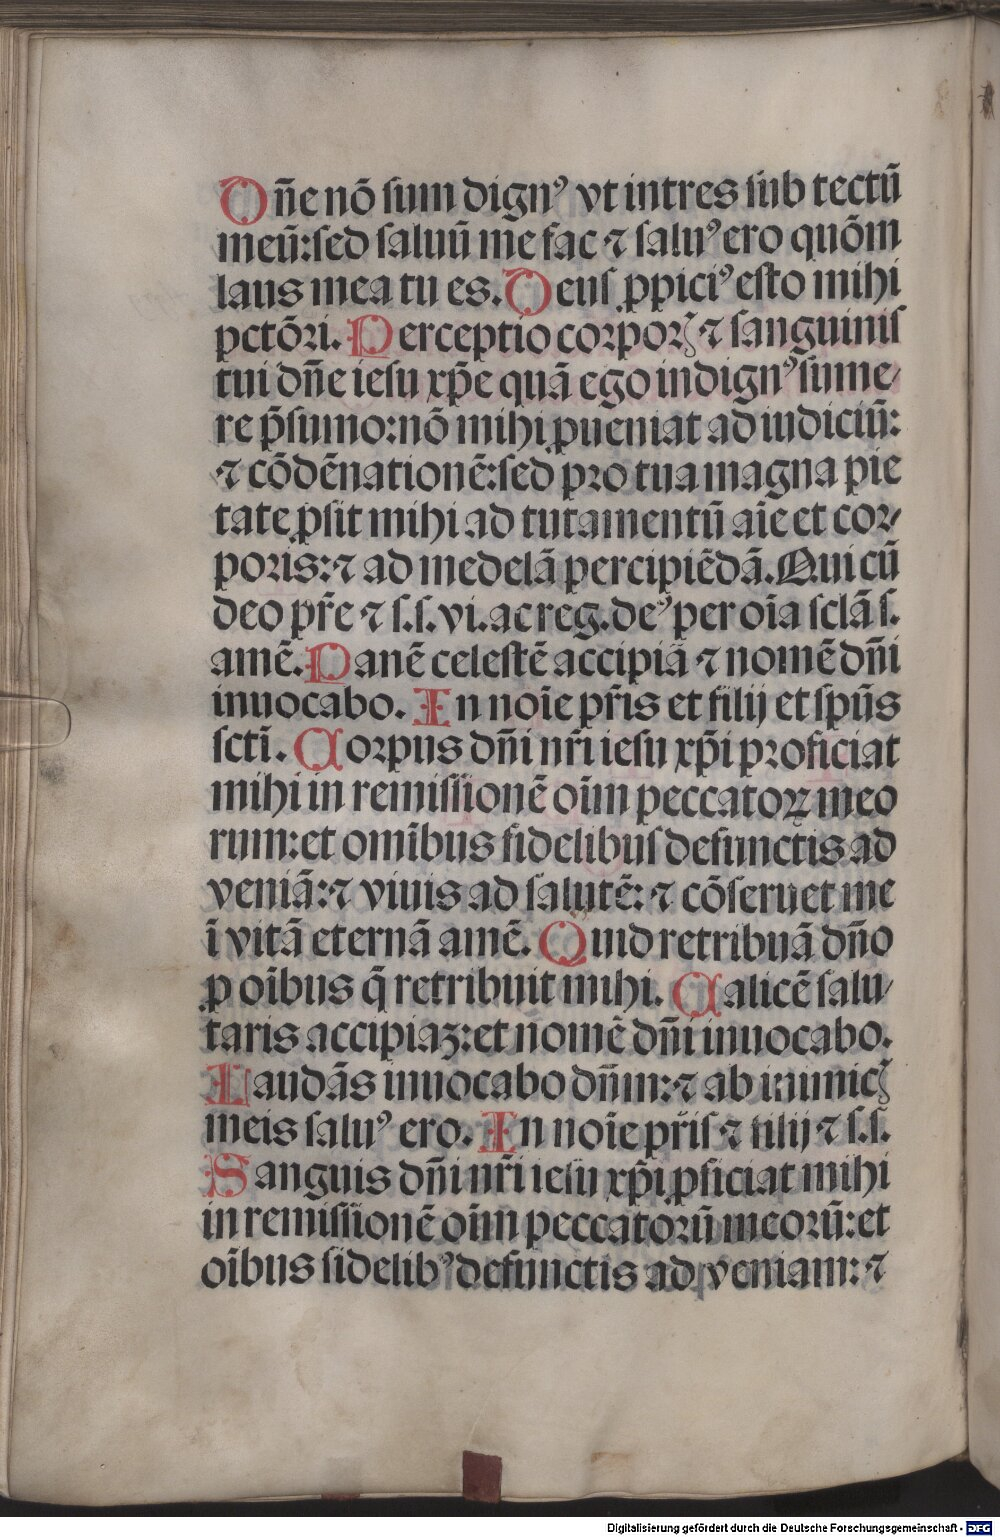 Dñe nō sum dignꝰ vt intres sub tectū
meū: sed saluū me fac ⁊ saluꝰ ero quōm
laus mea tu es. Deus ꝓpiciꝰ esto mihi
pctōri. Perceptio corporꝭ ⁊ sanguinis
tui dñe iesu xp̄e quā ego indignꝰ sume/
re p̄sumo: nō mihi ꝓueniat ad iudiciū:
⁊ cōdēnationē: sed pro tua magna pie
tate ꝓsit mihi ad tutamentū aīe et cor/
poris: ⁊ ad medelā percipiēdā. Qui cū
deo pr̄e ⁊ s. s. vi. ac reg. deꝰ per oīa sclā s.
amē. Panē celestē accipiā ⁊ nomē dñi
inuocabo. In noīe pr̄is et filij et sp̄us
sctī. Corpus dñi nr̄i iesu xp̄i proficiat
mihi in remissionē oīm peccatoꝝ meo
rum: et omībus fidelibus defunctis ad
veniā: ⁊ viuis ad salutē: ⁊ cōseruet me
ī vitā eternā amē. Quid retribuā dño
ꝓ oībus q̄ retribuit mihi. Calicē salu/
taris accipiaꝫ: et nomē dñi inuocabo.
Laudās inuocabo dñm: ⁊ ab inimicꝭ
meis saluꝰ ero. In noīe pr̄is ⁊ filij ⁊ s. s.
Sanguis dñi nr̄i iesu xp̄i ꝓficiat mihi
in remissionē oīm peccatorū meorū: et
oībus fidelibꝰ defunctis ad veniam: ⁊
Digitalisierung gefördert durch die Deutsche Forschungsgemeinschaft - DFG